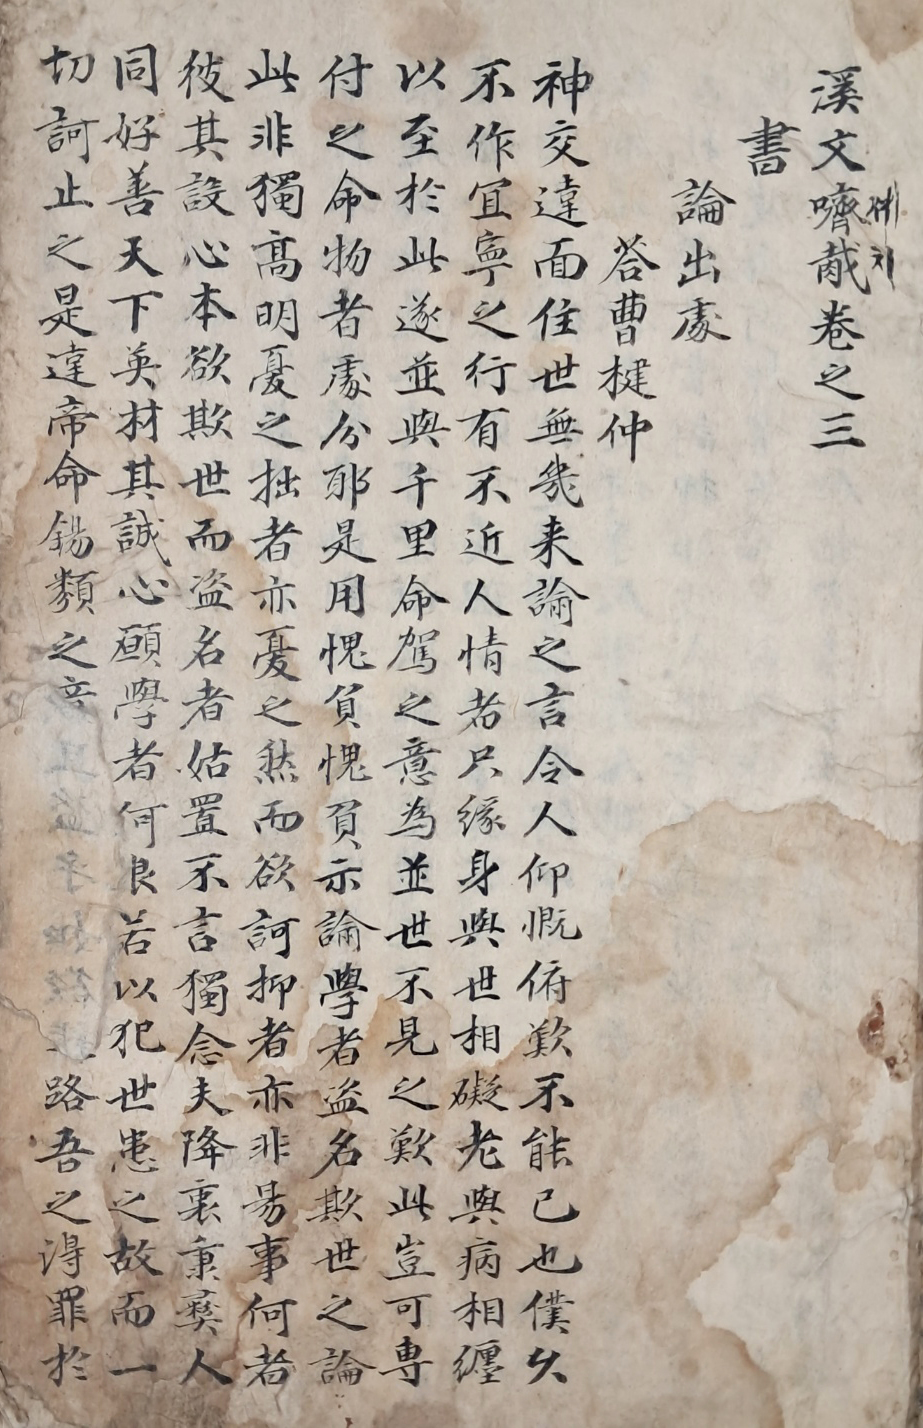 溪文嚌胾卷之三
書
論出處
荅曹楗仲
神交違面住世無幾来論之言令人仰慨俯歎不能已也僕久
不作冝寧之行有不近人情者只緣身與世相礙老與病相纒
以至於此遂並與千里命駕之意為並世不見之歎此豈可専
付之命物者處分耶是用愧負愧負示論學者盗名欺世之論
此非獨髙明憂之拙者亦憂之然而欲訶抑者亦非易事何者
彼其設心本欲欺世而盗名者姑置不言獨念夫降衷秉彝人
同好善天下英材其誠心願學者何良若以犯世患之故而一
切訶止之是違帝命錫類之 路吾之淂罪於